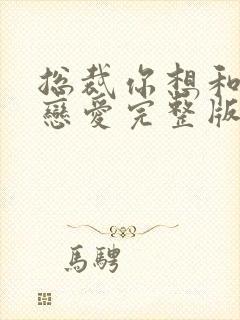 总裁你想和
戀爱完整版
馬騁